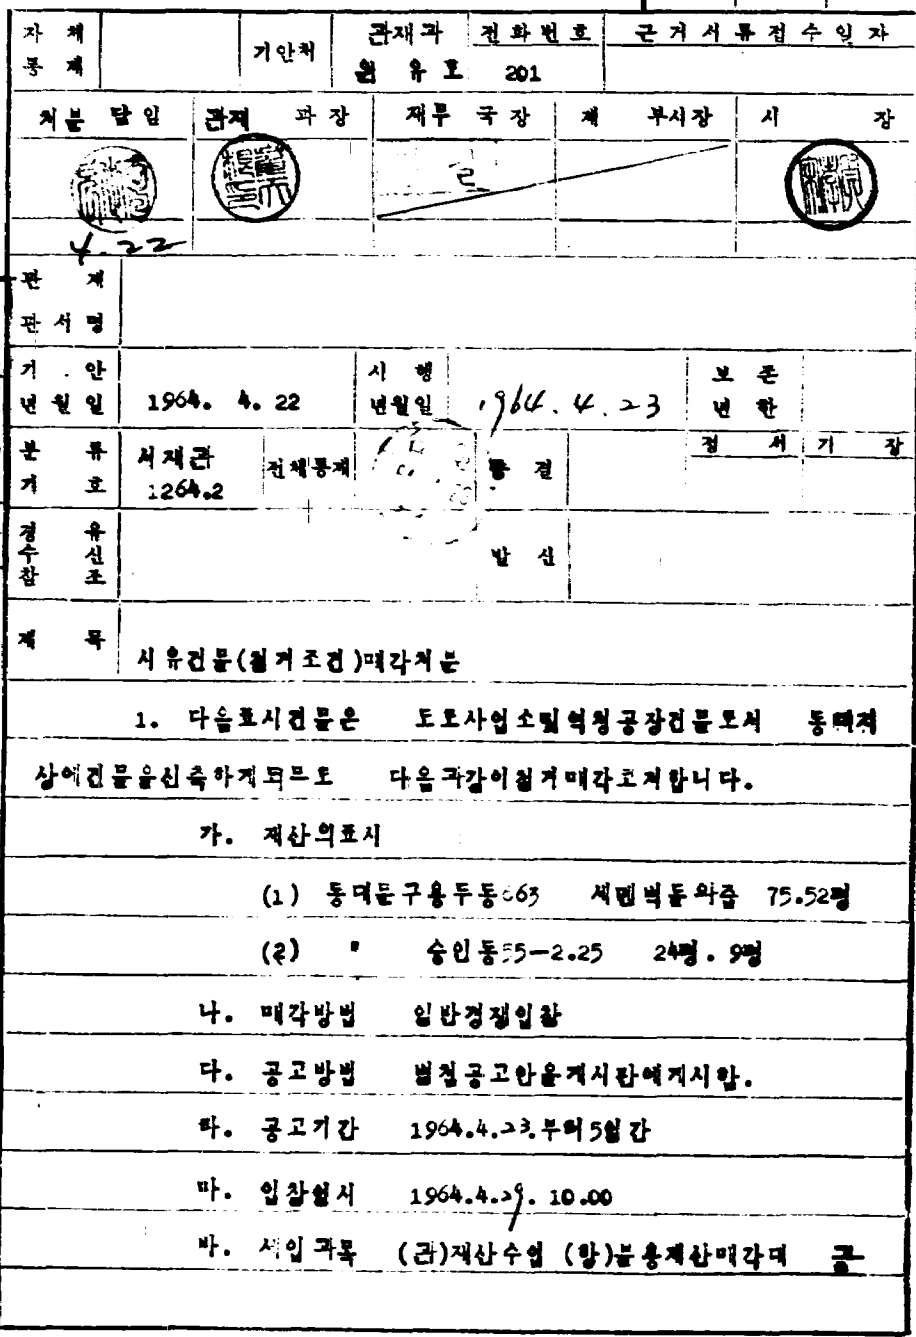 자체 기안처 관재과 전화번호 근거서류접수일자
통제 원유호 201
처분담임 관재 과장 재무국장 제 부시장 시 장
4.22
관 계
관서명
기 안 시 행 보 존
년월일 1964. 4. 22 년월일 1964. 4. 23 년 한
분 류 서재관 전체통제 종 결 접 서 기 장
기 호 1264.2
경 유
수 신 발 신
참 조
제 목 시유건물(철거조건)매각처분
1. 다음표시건물은 도로사업소및역청공장건물로서 동대지
상에건물을신축하게되므로 다음과같이철거매각코저합니다.
가. 재산의표시
(1) 동대문구용두동 663 세멘벽돌와즙 75.52평
(2) " 숭인동55-2.25 24평. 9평
나. 매각방법 일반경쟁입찰
다. 공고방법 별첨공고안을게시판에게시함.
라. 공고기간 1964.4.23.부터5일간
마. 입찰일시 1964.4.29. 10.00
바. 세입과목 (관)재산수입 (항)불용재산매각대 금